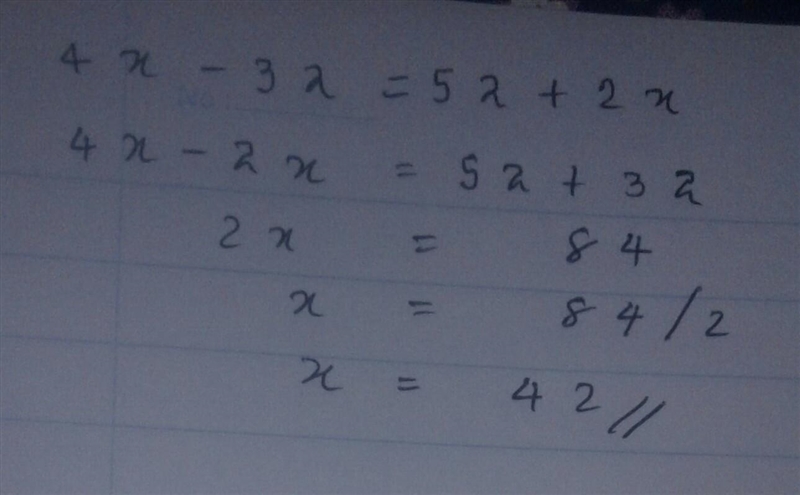 4x - 32 = 52 + 2x
4x - 2x = 52 + 32
2x = 84
x = 84/2
x = 42//